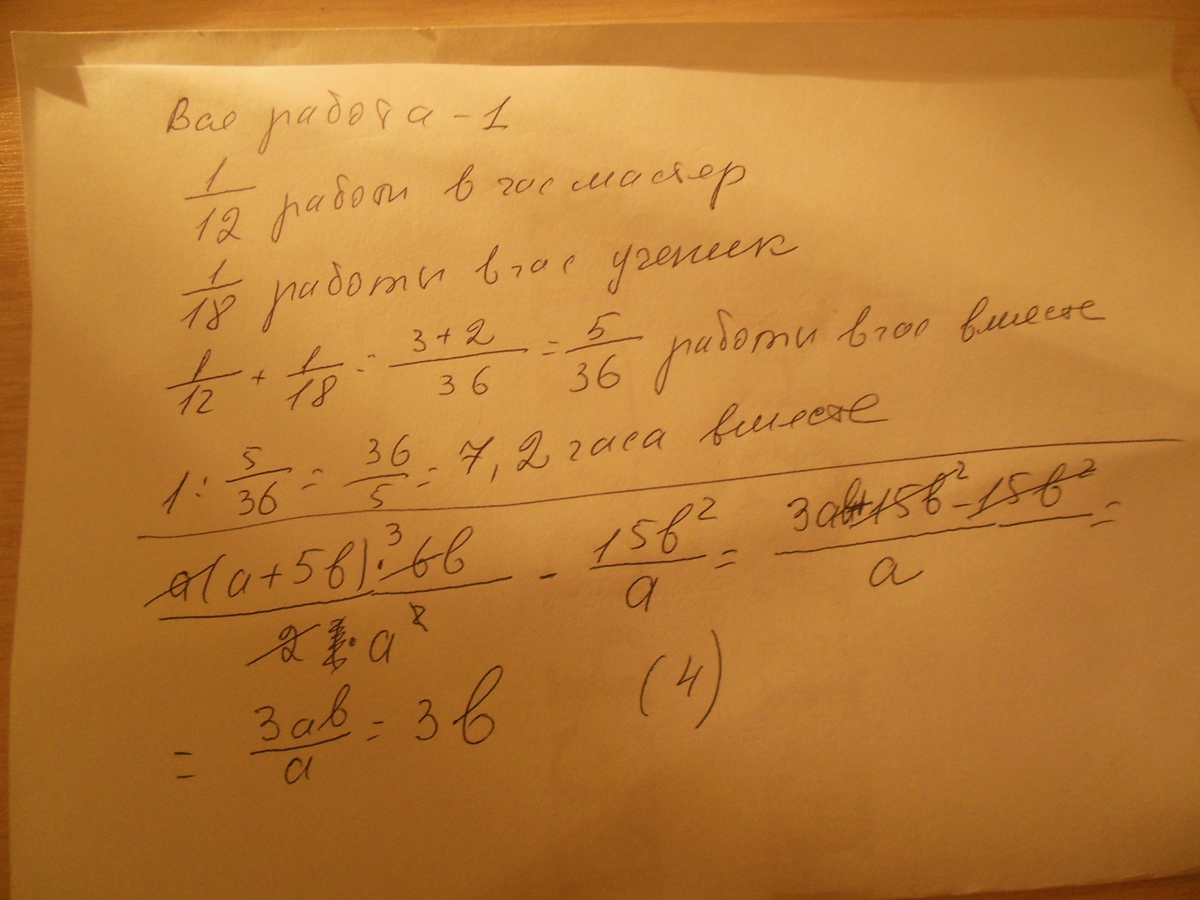 Вся работа - 1
1/12 работы в час мастер
1/18 работы в час ученик
1/12 + 1/18 = (3+2)/36 = 5/36 работы в час вместе
1 : 5/36 = 36/5 = 7,2 часа вместе
a(a+5b)·6b 3 / 2·a² - 15b²/a = (3ab+15b²-15b²)/a =
= 3ab/a = 3b (4)